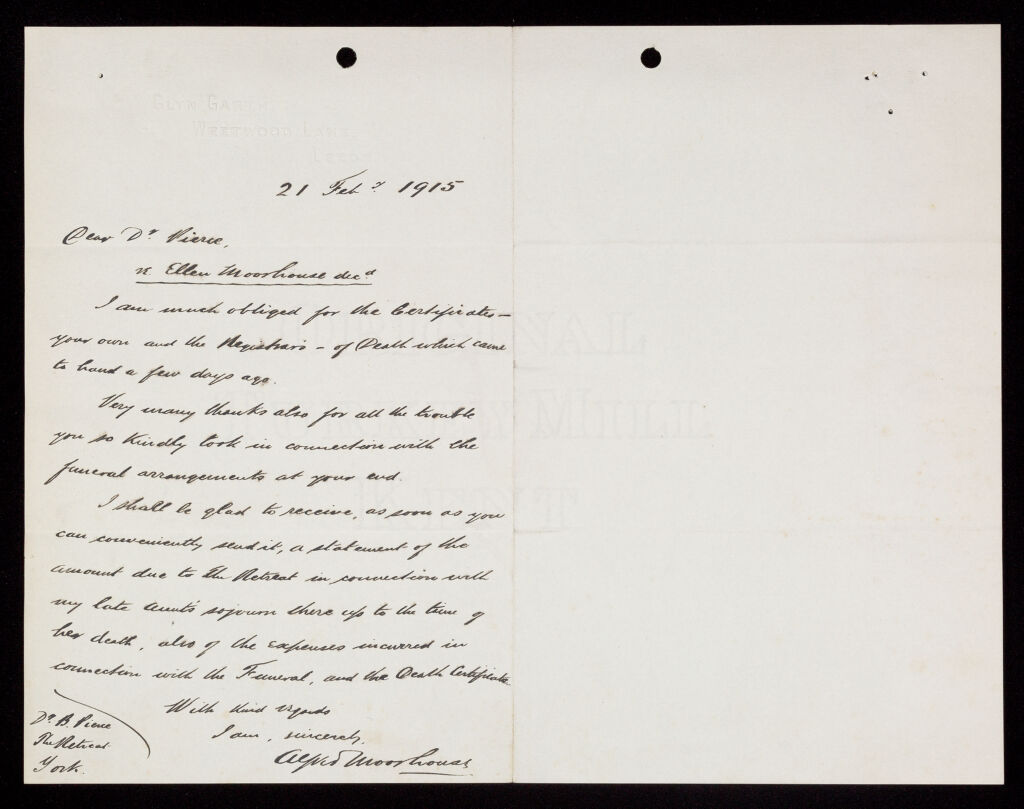 Glyn Garth,
Weetwood Lane,
Leeds.
21 Feby 1915
Dear Dr Pierce,
re Ellen Moorhouse decd
I am much obliged for the Certificates –
your own and the Registrar's – of Death which came
to hand a few days ago.
Very many thanks also for all the trouble
you so kindly took in connection with the
funeral arrangements at your end.
I shall be glad to receive, as soon as you
can conveniently send it, a statement of the
amount due to The Retreat in connection with
my late Aunt's sojourn there up to the time of
her death, also of the expenses incurred in
connection with the Funeral, and the Death Certificate.
With kind regards
I am, sincerely,
Alfred Moorhouse
Dr. B. Pierce
The Retreat
York.